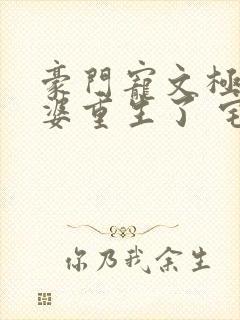 豪門寵文極
婆重生了
你乃我余生